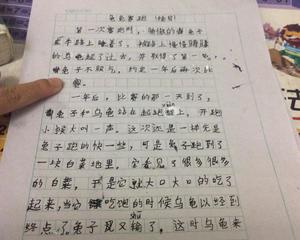 龟兔赛跑 续集
第一次赛跑时，骄傲的兔子
在半路上睡着了，被路上慢慢腾腾
的乌龟超了过去，并取得了第一名，
兔子不服气，约定一年后再次比
赛。
一年后，比赛的那一天到了，
兔子和乌龟站在起跑线上，开跑
小猴大叫一声。这次还是一样先是
兔子跑的快一些，可是兔子跑到了
一块白菜地里，它看见了很多很多
的白菜，于是它就大口大口的吃了
起来，当它吃饱的时候乌龟以经到
shū
终点了兔子又输了。这时乌龟来